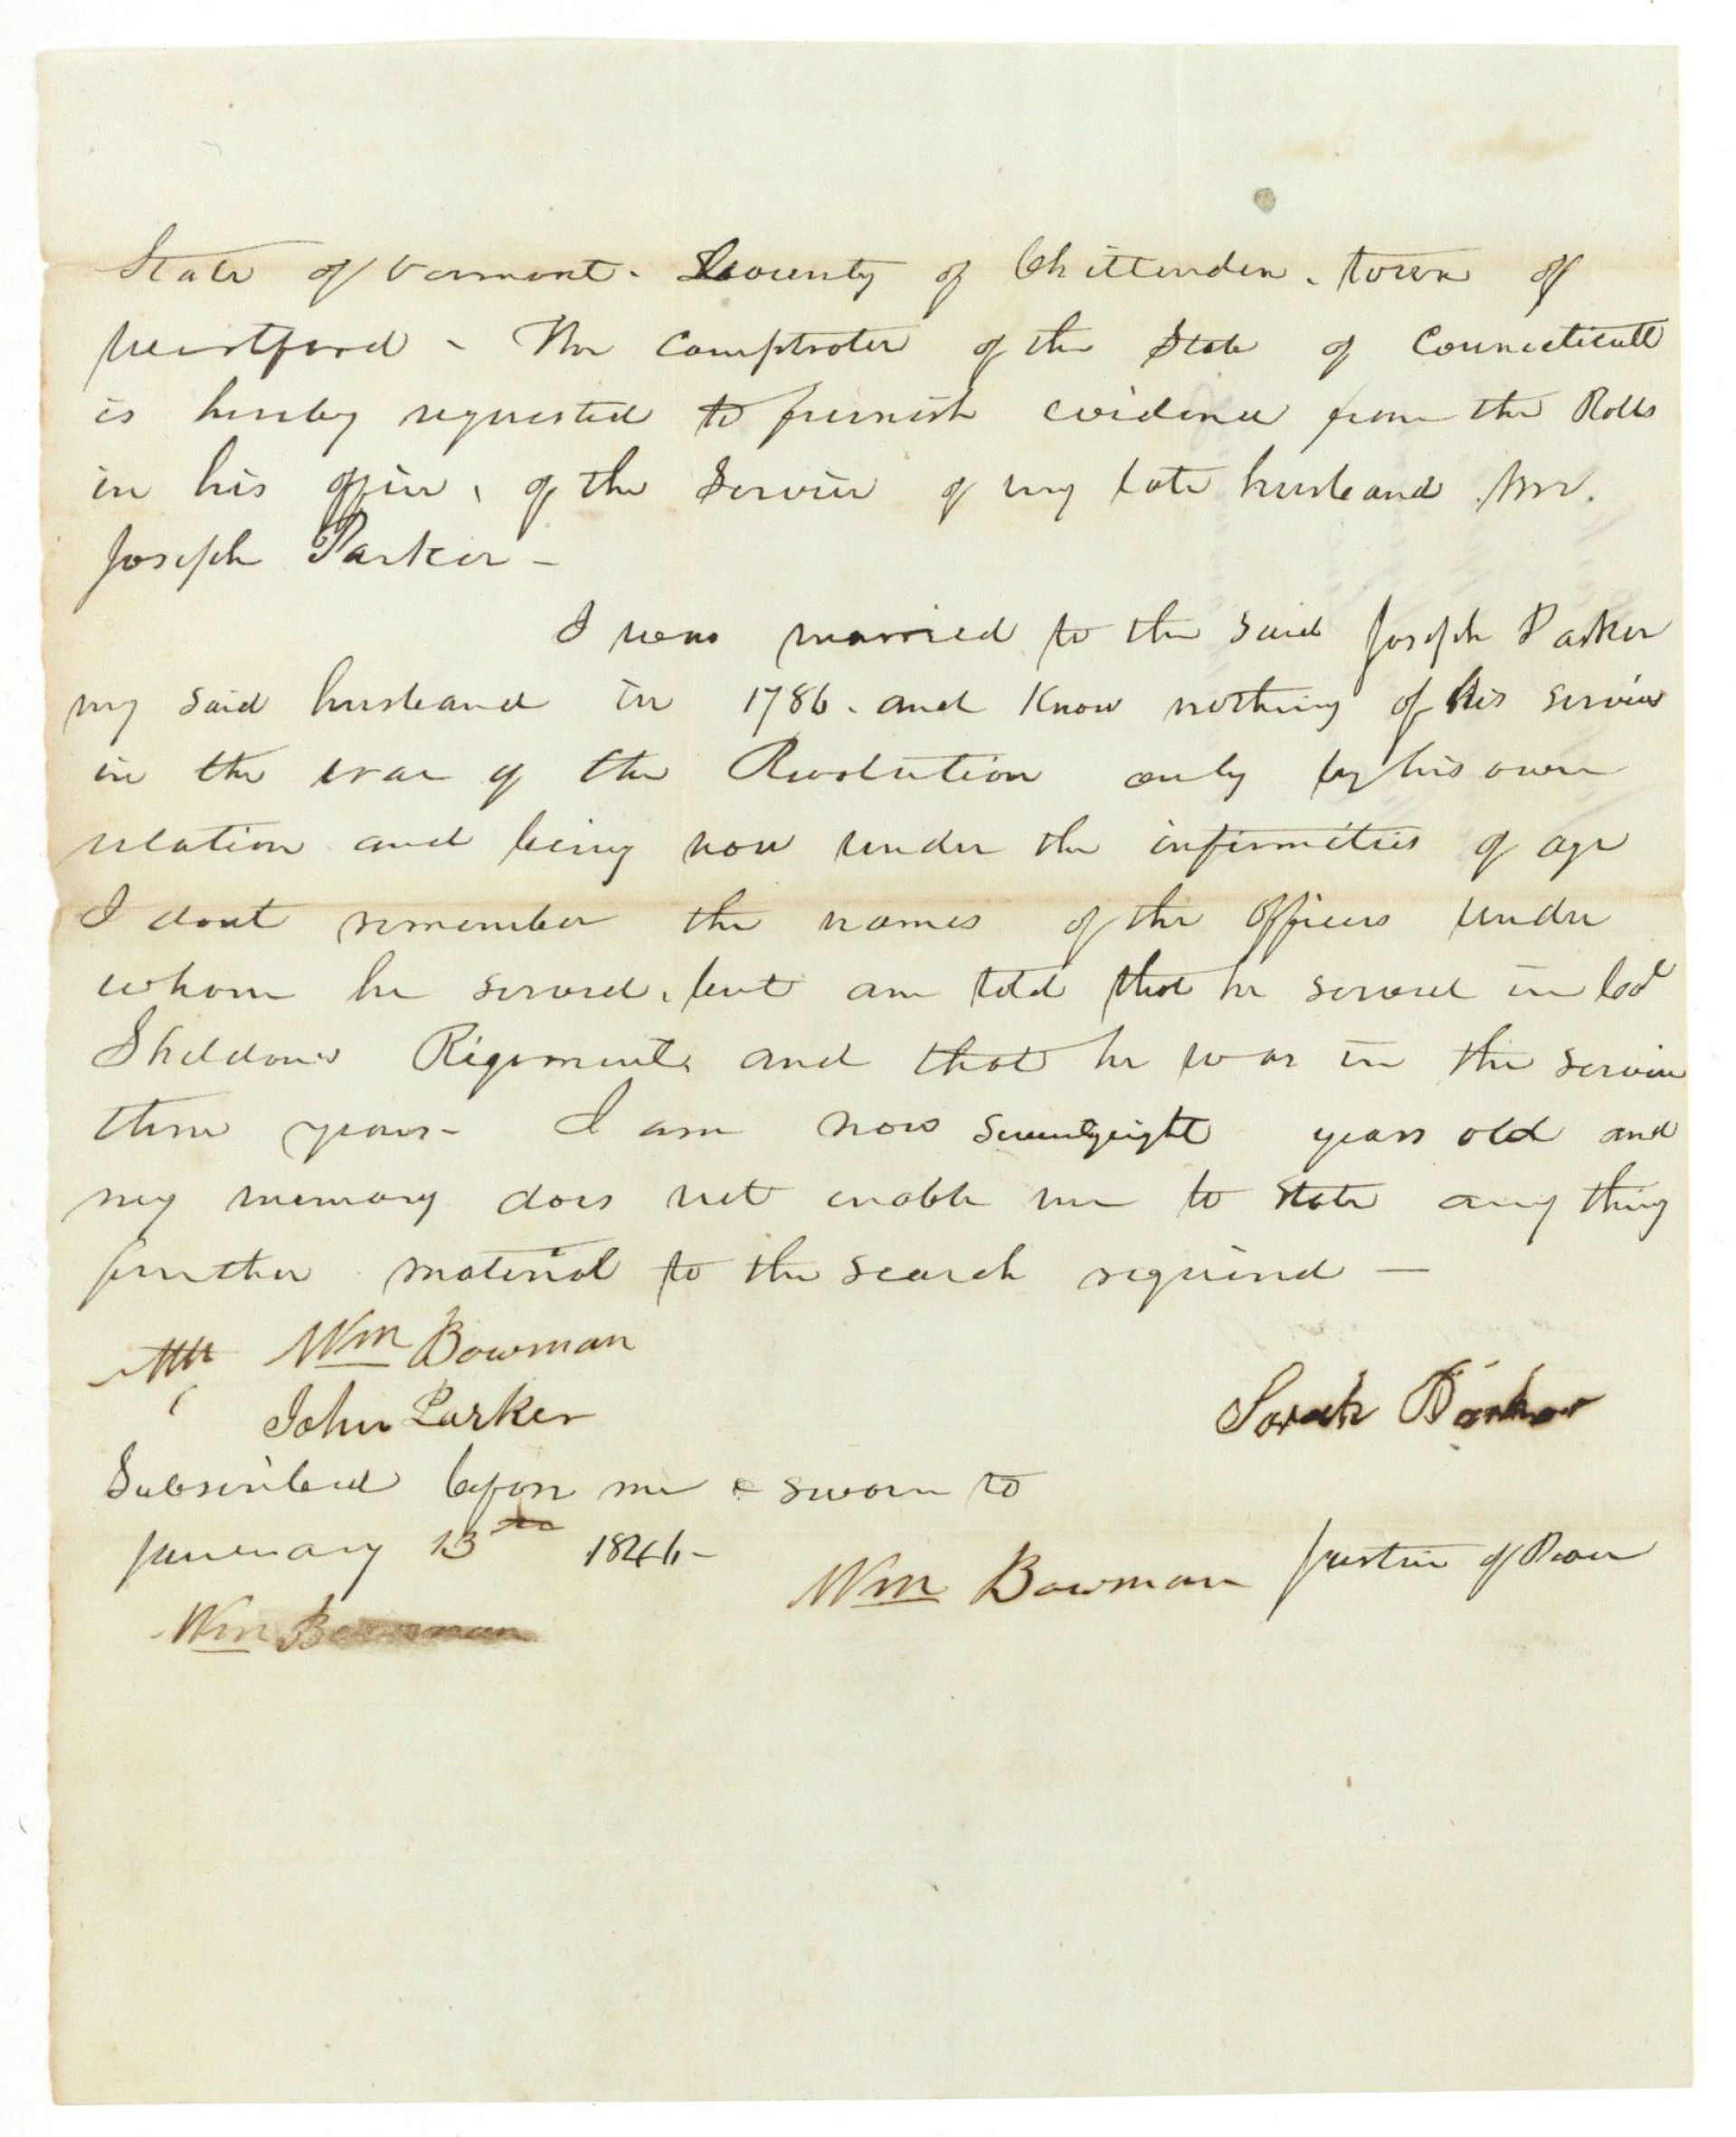 State of Vermont. County of Chittenden. town of
Westford - The Comptroler of the State of Connecticutt
is hereby requested to furnish evidence from the Rolls
in his office, of the Service of my late husband Mr.
Joseph Parker -
I was married to the said Joseph Parker
my said husband in 1786. and Know nothing of his service
in the war of the Revolution only by his own
relation and being now under the infirmities of age
I dont remember the names of the Officers under
whom he served, but am told that he served in Col
Sheldons Regiment, and that he was in the service
three years - I am now seventyeight years old and
my memory does not enable me to state any thing
further material to the search required -
Wm Bowman
John Parker
Sarah Parker
Subscribed before me & sworn to
January 13th 1846-
Wm Bowman Justice of Peace
Wm Bowman